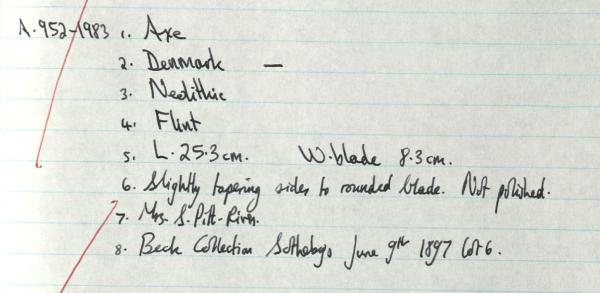 A.952-1983 1. Axe
2. Denmark —
3. Neolithic
4. Flint
5. L. 25.3cm. W. blade 8.3cm.
6. Slightly tapering sides to rounded blade. Not polished.
7. Mrs. S. Pitt-Rivers.
8. Beck Collection Sothebys June 9th 1897 lot 6.